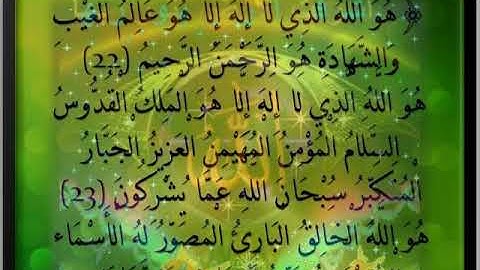 هُوَ اللَّهُ الَّذِي لَا إِلَهَ إِلَّا هُوَ عَالِمُ الْغَيْبِ
وَالشَّهَادَةِ هُوَ الرَّحْمَنُ الرَّحِيمُ (22)
هُوَ اللَّهُ الَّذِي لَا إِلَهَ إِلَّا هُوَ الْمَلِكُ الْقُدُّوسُ
السَّلَامُ الْمُؤْمِنُ الْمُهَيْمِنُ الْعَزِيزُ الْجَبَّارُ
الْمُتَكَبِّرُ سُبْحَانَ اللَّهِ عَمَّا يُشْرِكُونَ (23)
هُوَ اللَّهُ الْخَالِقُ الْبَارِئُ الْمُصَوِّرُ لَهُ الْأَسْمَاء